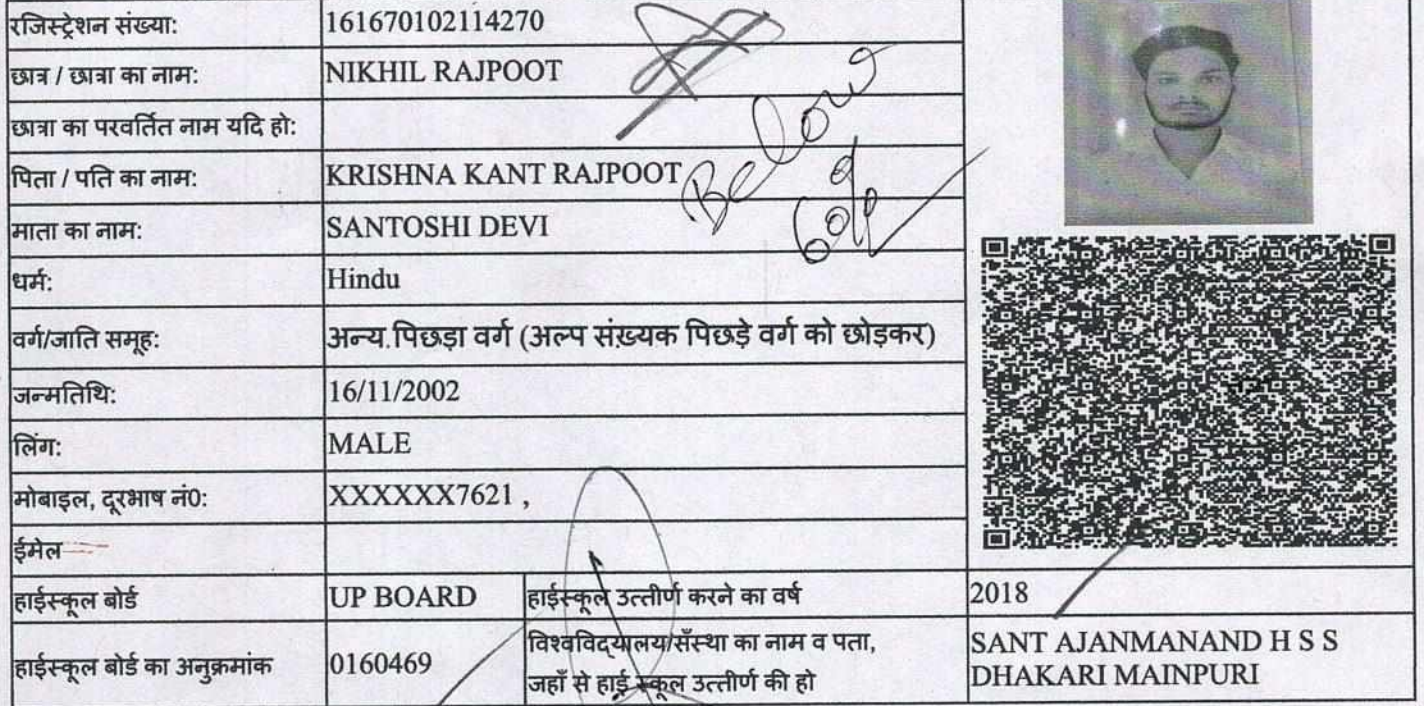 रजिस्ट्रेशन संख्या: 161670102114270
छात्र / छात्रा का नाम: NIKHIL RAJPOOT
छात्रा का परवर्तित नाम यदि हो:
पिता / पति का नाम: KRISHNA KANT RAJPOOT
Below
60%
माता का नाम: SANTOSHI DEVI
धर्म: Hindu
वर्ग/जाति समूह: अन्य.पिछड़ा वर्ग (अल्प संख्यक पिछड़े वर्ग को छोड़कर)
जन्मतिथि: 16/11/2002
लिंग: MALE
मोबाइल, दूरभाष नं0: XXXXXX7621 ,
ईमेल
हाईस्कूल बोर्ड UP BOARD हाईस्कूल उत्तीर्ण करने का वर्ष 2018
हाईस्कूल बोर्ड का अनुक्रमांक 0160469 विश्वविद्यालय/सँस्था का नाम व पता,
जहाँ से हाई स्कूल उत्तीर्ण की हो
SANT AJANMANAND H S S
DHAKARI MAINPURI